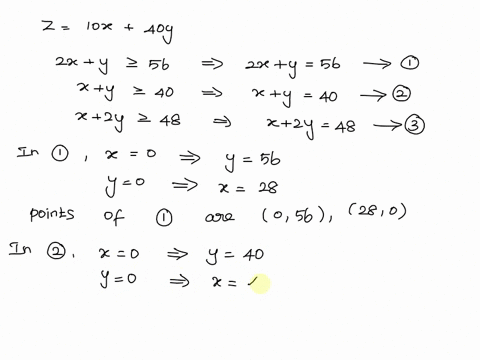 Z = 10x + 40y
2x+y ≥ 56 ⇒ 2x+y = 56 → ①
x+y ≥ 40 ⇒ x+y = 40 → ②
x+2y ≥ 48 ⇒ x+2y = 48 → ③
In ①, x=0 ⇒ y = 56
y=0 ⇒ x = 28
points of ① are (0,56), (28,0)
In ②, x=0 ⇒ y = 40
y=0 ⇒ x =